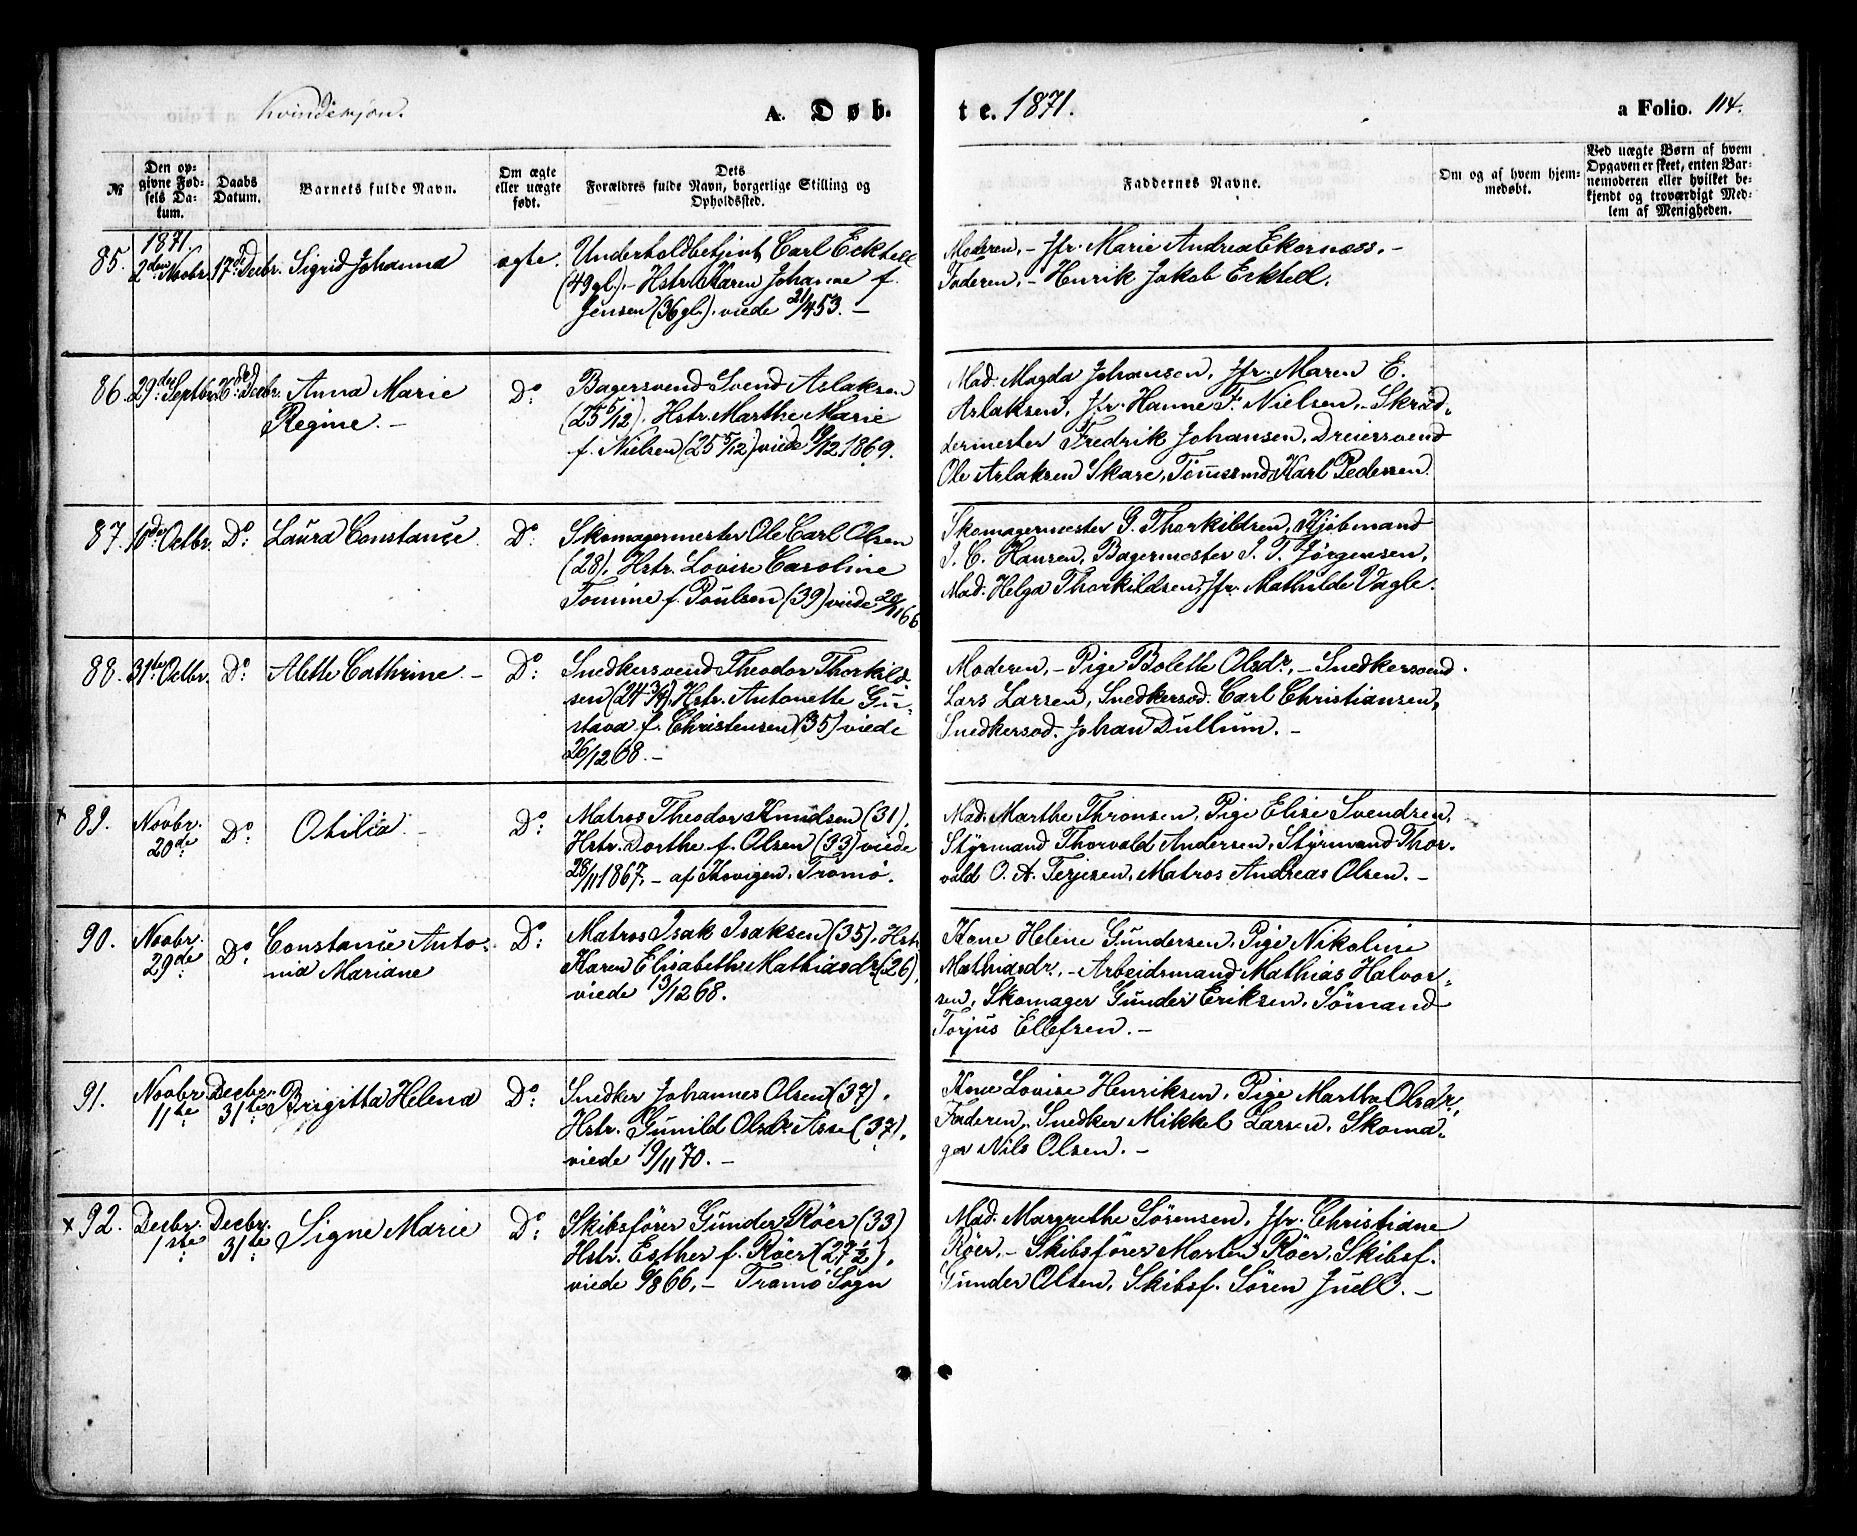 Kvindekjøn. A. Døb- te. 1871. a Folio. 114.
№ Den opgivne Fødsels Datum. Daabs Datum. Barnets fulde Navn. Om ægte eller uægte født. Dets Forældres fulde Navn, borgerlige Stilling og Opholdssted. Faddernes Navne. Om og af hvem hjemmedøbt. Ved uægte Børn af hvem Opgaven er skeet, enten Barnemoderen eller hvilket bekjendt og troværdigt Medlem af Menigheden.
1871.
85. 2den Novbr. 17de Decbr. Sigrid Johanna ægte. Underholdbetjent Carl Eckhell
(49 gl.). - Hstr. Karen Johanne f.
Jensen (36 gl.). viede 21/4 53. -
Moderen, - Jfr. Marie Andrea Ekornæss. -
Faderen, - Henrik Jakob Eckhell.
86. 29de Septbr. 26de Decbr. Anna Marie
Regine. -
Do: Bagersvend Svend Aslaksen
(25 5/12). Hstr. Marthe Marie
f. Nielsen (25 5/12) viede 19/12 1869.
Mad. Magda Johansen, Jfr. Maren E.
Aslaksen, Jfr. Hanne F. Nielsen, - Skræd-
dermester Fredrik Johansen, Dreiersvend
Ole Aslaksen Skare, Tømmermd Karl Pedersen.
87. 10de Octbr. Do: Laura Constance. Do: Skomagermester Ole Carl Olsen
(28), Hstr. Lovise Caroline
Tomine f. Poulsen (39) viede 20/11 66.
Skomagermester G. Thorkildsen, Kjøbmand
I. C. Hansen, Bagermester I. T. Jørgensen,
Mad. Helga Thorkildsen, Jfr. Mathilde Vagle.
88. 31te Octbr. Do: Alette Cathrine - Do: Snedkersvend Theodor Thorkild-
sen (24 3/4), Hstr. Antonette Gu-
stava f. Christensen (35) viede
26/12 68. -
Moderen, - Pige Bolette Olsdr. - Snedkersvend
Lars Larsen, Snedkersvd. Carl Christiansen,
Snedkersvd. Johan Dullum. -
× 89. Novbr. 20de Do: Othilia - Do: Matros Theodor Knudsen (31),
Hstr. Dorthe f. Olsen (33) viede
28/11 1867. - af Thovigen, Tromø.
Mad. Marthe Thronsen, Pige Elise Svendsen,
Styrmand Thorvald Andersen, Styrmand Thor-
vald O. A. Terjesen, Matros Andreas Olsen. -
90. Novbr. 29de Do: Constance Anto-
nia Mariane
Do: Matros Isak Isaksen (35), Hstr.
Karen Elisabeth Mathiasdr. (26),
viede 13/12 68.
Kone Helene Gundersen, Pige Nikoline
Mathiasdr. - Arbeidsmand Mathias Halvor-
sen, Skomager Gunder Eriksen, Sømand
Torjus Ellefsen. -
91. Novbr. 11te Decbr. 31te Birgitta Helena Do: Snedker Johannes Olsen (37).
Hstr. Gunild Olsdr. Asse (37),
viede 19/11 70. -
Kone Lovise Henriksen, Pige Martha Olsdr.,
Faderen, Snedker Mikkel Larsen, Skoma-
ger Nils Olsen. -
× 92. Decbr. 1ste Decbr. 31te Signe Marie Do: Skibsfører Gunder Röer (33)
Hstr. Esther f. Röer (27 1/2),
viede 9/8 66, - Tromø Sogn
Mad. Margrethe Sørensen, Jfr. Christiane
Röer, - Skibsfører Morten Röer, Skibsf.
Gunder Olsen, Skibsf. Søren Juell. -